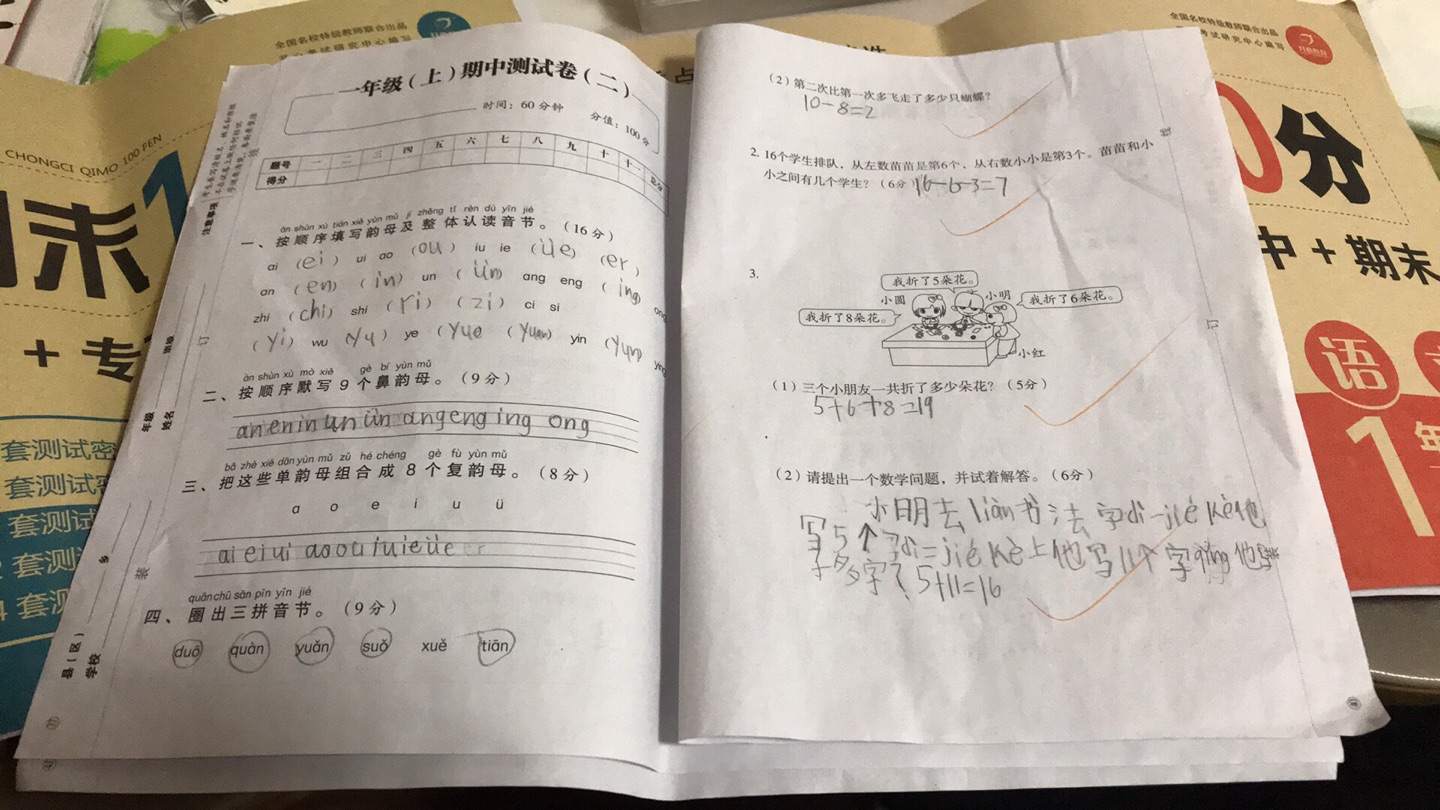 全国名校特级教师联合出品
CHONGCI QIMO 100 FEN
末1
+ 专
套测试
套测试
套测试
套测试
套测试
注意事项
县（区）
乡
学校
年级
班级
姓名
装
订
一年级（上）期中测试卷（二）
时间：60分钟
分值：100分
题号 一 二 三 四 五 六 七 八 九 十 十一 总分
得分
àn shùn xù tián xiě yùn mǔ jí zhěng tǐ rèn dú yīn jié
一、按顺序填写韵母及整体认读音节。（16分）
ai （ei） ui ao （ou） iu ie （üe） （er）
an （en） （in） un （ün） ang eng （ing） ong
zhi （chi） shi （ri） （zi） ci si
（yi） wu （yu） ye （yue） （yuan） yin （yun） ying
àn shùn xù mò xiě gè bí yùn mǔ
二、按顺序默写9个鼻韵母。（9分）
an en in un ün ang eng ing ong
bǎ zhè xiē dān yùn mǔ zǔ hé chéng gè fù yùn mǔ
三、把这些单韵母组合成8个复韵母。（8分）
a o e i u ü
ai ei ui ao ou iu ie üe er
quān chū sān pīn yīn jié
四、圈出三拼音节。（9分）
duō quàn yuǎn suǒ xuě tiān
（2）第二次比第一次多飞走了多少只蝴蝶？
10-8=2
2. 16个学生排队，从左数苗苗是第6个，从右数小小是第3个。苗苗和小
小之间有几个学生？（6分）16-6-3=7
3.
我折了5朵花。
小圆
小明
我折了6朵花。
我折了8朵花。
小红
（1）三个小朋友一共折了多少朵花？（5分）
5+6+8=19
（2）请提出一个数学问题，并试着解答。（6分）
小明去liàn书法字dì一jié kè他
写5个字dì二jié kè上他写11个字qǐng他写
多字？5+11=16
线
订
41
全国名校特级教师联合出品
研究中心编写
0分
中 + 期末
语
1年